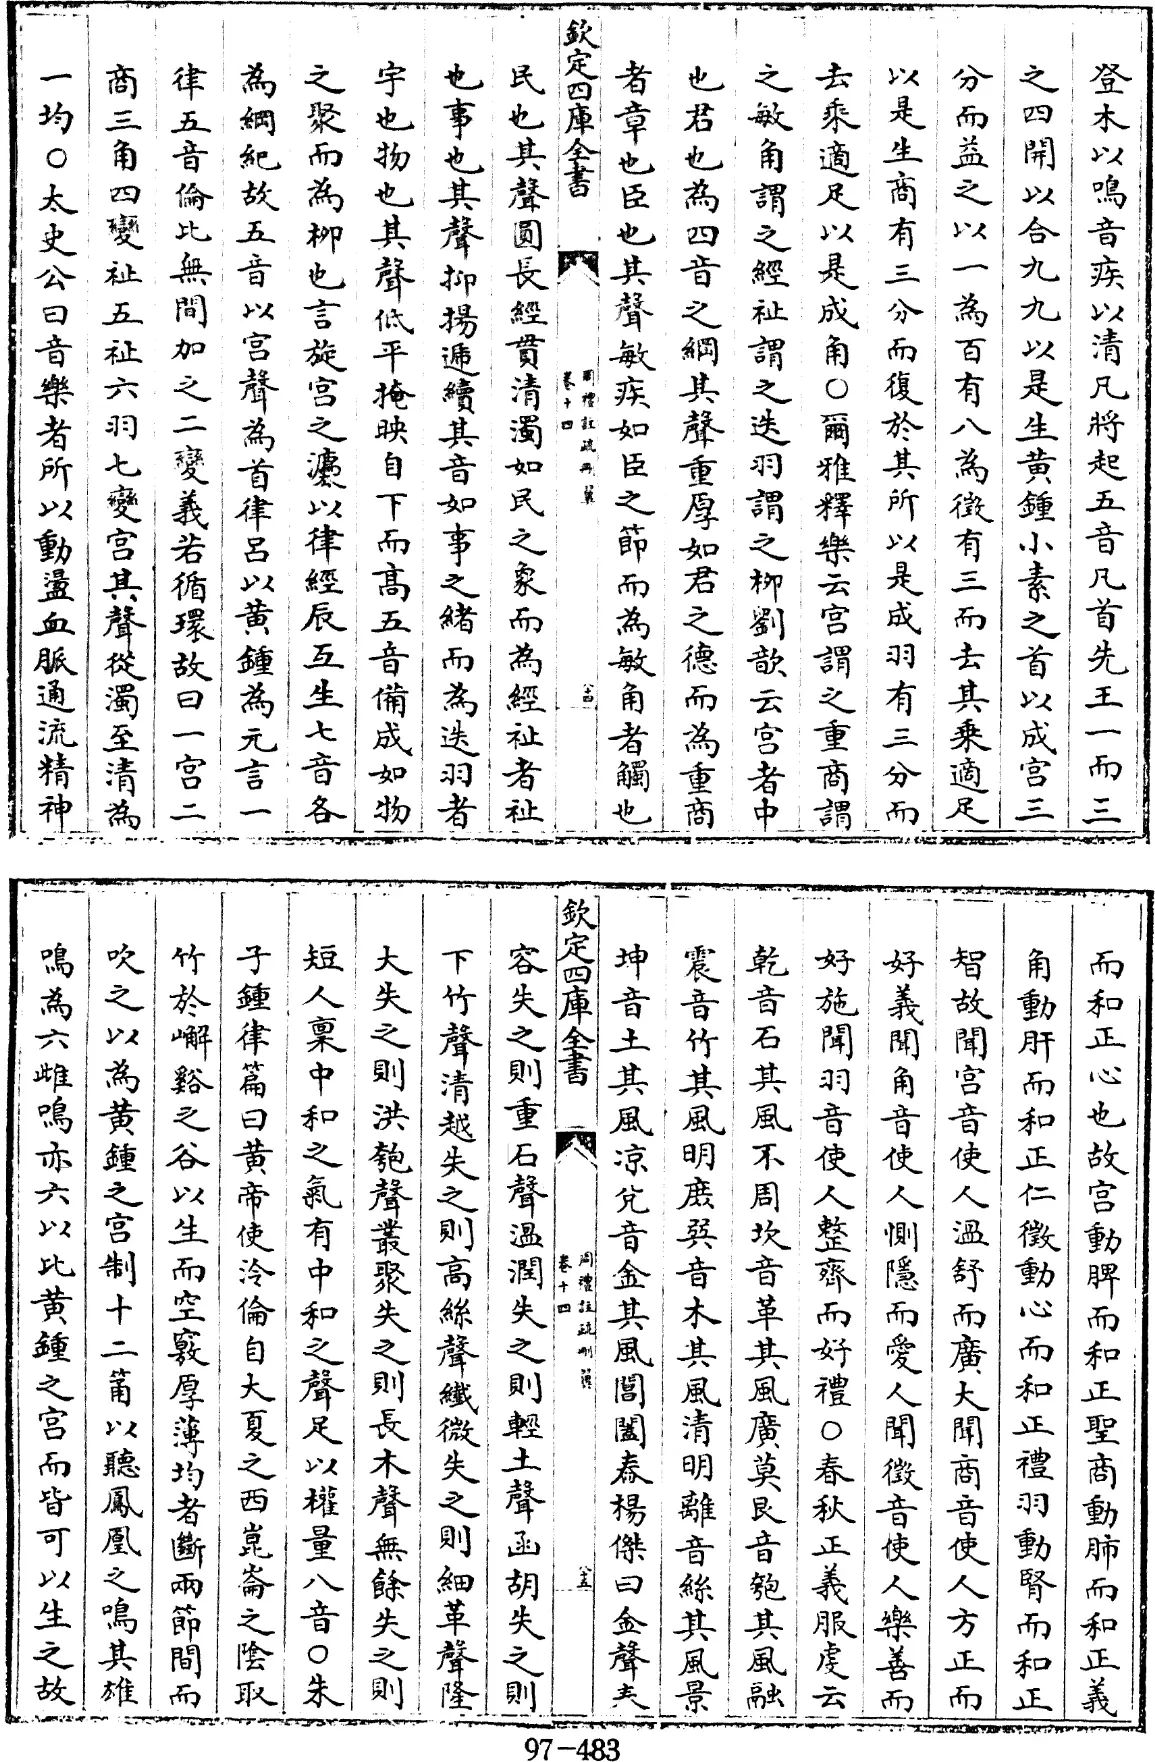 登木以鳴音疾以清凡將起五音凡首先王一而三
之四開以合九九以是生黄鍾小素之首以成宫三
分而益之以一為百有八為徵有三而去其乗適足
以是生商有三分而復於其所以是成羽有三分而
去乘適足以是成角○爾雅釋樂云宫謂之重商謂
之敏角謂之經祉謂之迭羽謂之栁劉歆云宫者中
也君也為四音之綱其聲重厚如君之德而為重商
者章也臣也其聲敏疾如臣之節而為敏角者觸也
欽定四庫全書
周禮註疏刪翼
卷十四
八十四
民也其聲圓長經貫清濁如民之象而為經祉者祉
也事也其聲抑揚遞續其音如事之緒而為迭羽者
宇也物也其聲低平掩映自下而髙五音備成如物
之聚而為栁也言旋宫之灋以律經辰互生七音各
為綱紀故五音以宫聲為首律呂以黄鍾為元言一
律五音倫比無間加之二變義若循環故曰一宫二
商三角四變祉五祉六羽七變宫其聲從濁至清為
一均○太史公曰音樂者所以動盪血脈通流精神
而和正心也故宫動脾而和正聖商動肺而和正義
角動肝而和正仁徵動心而和正禮羽動腎而和正
智故聞宫音使人溫舒而廣大聞商音使人方正而
好義聞角音使人惻隱而愛人聞徵音使人樂善而
好施聞羽音使人整齊而好禮○春秋正義服虔云
乾音石其風不周坎音革其風廣莫艮音匏其風融
震音竹其風明庶巽音木其風清明離音絲其風景
坤音土其風涼兌音金其風閶闔春楊傑曰金聲夫
欽定四庫全書
周禮註疏刪翼
卷十四
八十五
容失之則重石聲溫潤失之則輕土聲函胡失之則
下竹聲清越失之則髙絲聲纖微失之則細革聲隆
大失之則洪匏聲叢聚失之則長木聲無餘失之則
短人稟中和之氣有中和之聲足以權量八音○朱
子鍾律篇曰黄帝使泠倫自大夏之西崑崙之陰取
竹於嶰谿之谷以生而空竅厚薄均者斷兩節間而
吹之以為黄鍾之宫制十二筩以聽鳳凰之鳴其雄
鳴為六雌鳴亦六以比黄鍾之宫而皆可以生之故
97-483